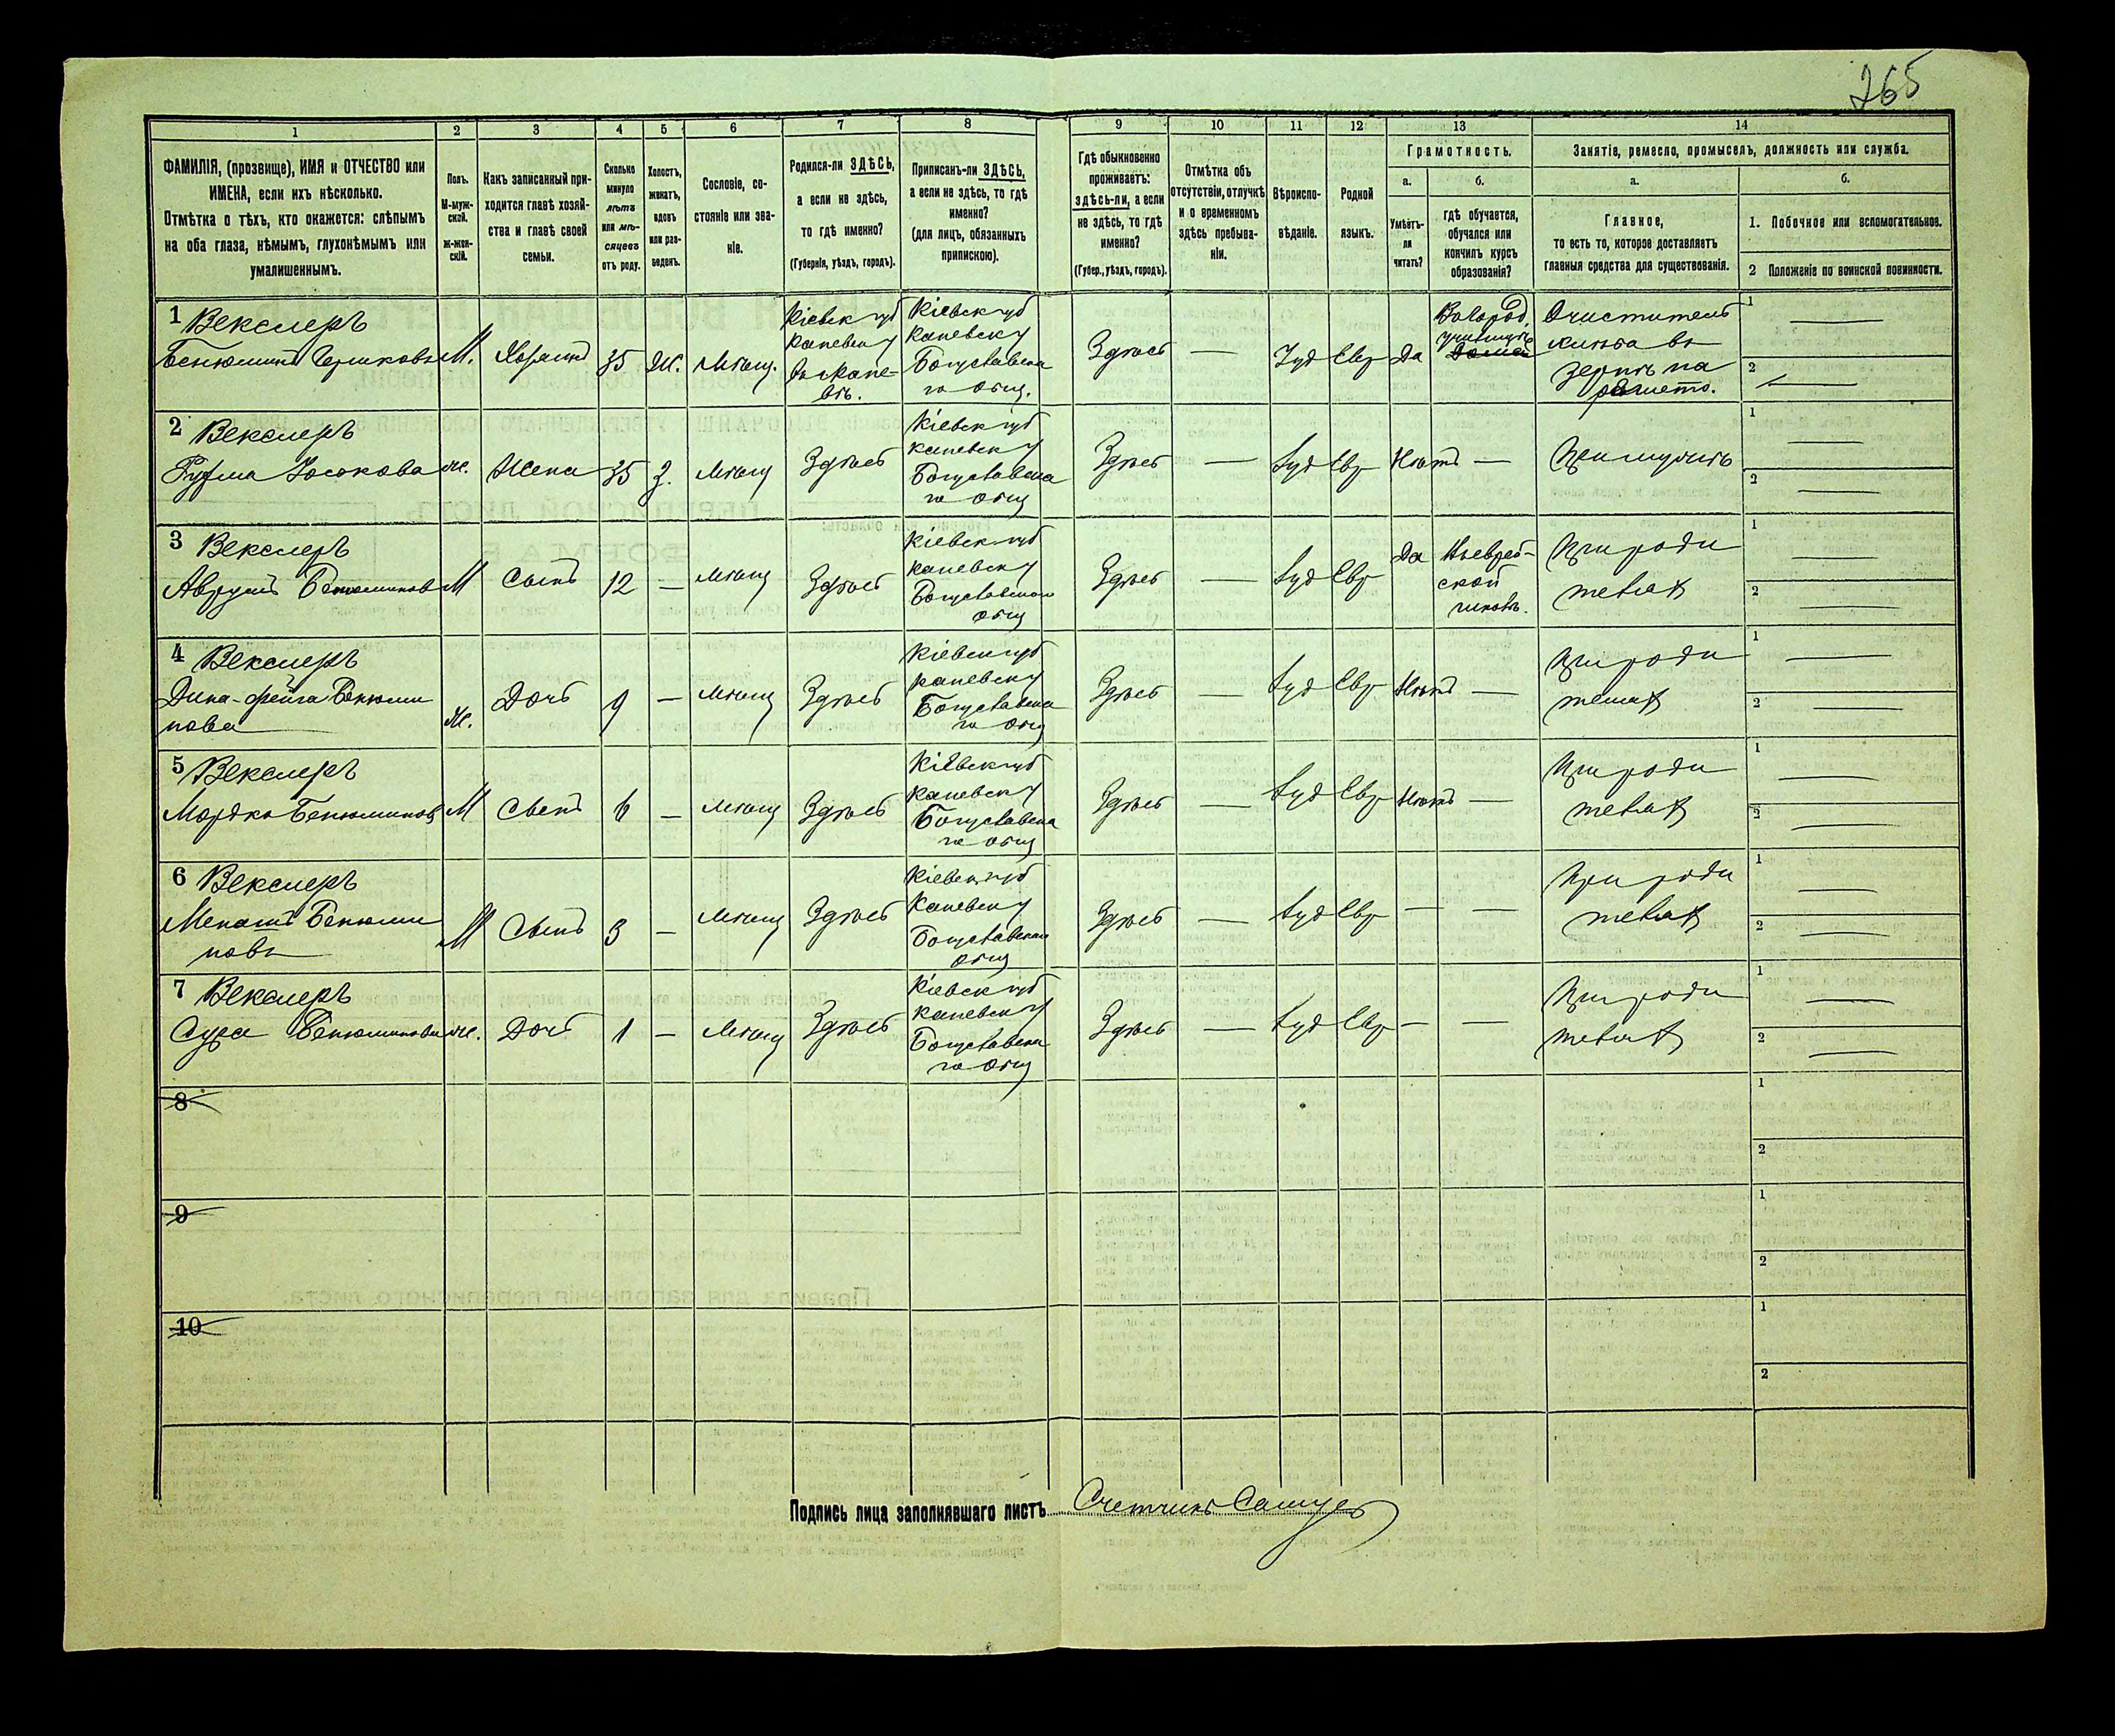 265
1
2
3
4
5
6
7
8
9
10
11
12
13
14
ФАМИЛІЯ, (прозвище), ИМЯ и ОТЧЕСТВО или
ИМЕНА, если ихъ нѣсколько.
Отмѣтка о тѣхъ, кто окажется: слѣпымъ
на оба глаза, нѣмымъ, глухонѣмымъ или
умалишеннымъ.
Полъ.
М-муж-
ской.
ж-жен-
скій.
Какъ записанный при-
ходится главѣ хозяй-
ства и главѣ своей
семьи.
Сколько
минуло
лѣтъ
или мѣ-
сяцевъ
отъ роду.
Холостъ,
женатъ,
вдовъ
или раз-
веденъ.
Сословіе, со-
стояніе или зва-
ніе.
Родился-ли ЗДѢСЬ,
а если не здѣсь,
то гдѣ именно?
(Губернія, уѣздъ, городъ).
Приписанъ-ли ЗДѢСЬ,
а если не здѣсь, то гдѣ
именно?
(для лицъ, обязанныхъ
припискою).
Гдѣ обыкновенно
проживаетъ:
здѣсь-ли, а если
не здѣсь, то гдѣ
именно?
(Губер., уѣздъ, городъ).
Отмѣтка объ
отсутствіи, отлучкѣ
и о временномъ
здѣсь пребыва-
ніи.
Вѣроиспо-
вѣданіе.
Родной
языкъ.
Грамотность.
а.
Умѣетъ-
ли
читать?
б.
гдѣ обучается,
обучался или
кончилъ курсъ
образованія?
Занятіе, ремесло, промыселъ, должность или служба.
а.
Главное,
то есть то, которое доставляетъ
главныя средства для существованія.
б.
1. Побочное или вспомогательное.
2 Положеніе по воинской повинности.
1 Векслеръ
М.
Хозяинъ
35
Ж.
Мѣщ.
Кіевск губ
Каневск у
Кіевск губ
Каневск у
Богуславска
го общ.
Здѣсь
—
Іуд
Евр
Да
1 —
2 —
2 Векслеръ
ж.
Жена
35
З.
Мѣщ
Здѣсь
Кіевск губ
Каневск у
Богуславска
го общ
Здѣсь
—
Іуд
Евр
Нѣтъ
—
При мужѣ
1 —
2 —
3 Векслеръ
Аврумъ Бенюминовъ
М
Сынъ
12
—
Мѣщ
Здѣсь
Кіевск губ
Каневск у
Богуславскаго
общ
Здѣсь
—
Іуд
Евр
Да
При роди
теляхъ
1 —
2 —
4 Векслеръ
Дина-Фейга Бенюми
нова
ж.
Дочь
9
—
Мѣщ
Здѣсь
Кіевск губ
Каневск у
Богуславска
го общ
Здѣсь
—
Іуд
Евр
Нѣтъ
—
При роди
теляхъ
1 —
2 —
5 Векслеръ
Мордко Бенюминовъ
М
Сынъ
6
—
Мѣщ
Здѣсь
Кіевск губ
Каневск у
Богуславска
го общ
Здѣсь
—
Іуд
Евр
Нѣтъ
—
При роди
теляхъ
1 —
2 —
6 Векслеръ
Бенюми
новъ
М
Сынъ
3
—
Мѣщ
Здѣсь
Кіевск губ
Каневск у
Богуславскаго
общ
Здѣсь
—
Іуд
Евр
—
—
При роди
теляхъ
1 —
2 —
7 Векслеръ
Сура Бенюминова
ж.
Дочь
1
—
Мѣщ
Здѣсь
Кіевск губ
Каневск у
Богуславска
го общ
Здѣсь
—
Іуд
Евр
—
—
При роди
теляхъ
1 —
2 —
8
1
2
9
1
2
10
1
2
Подпись лица заполнявшаго листъ Счетчикъ